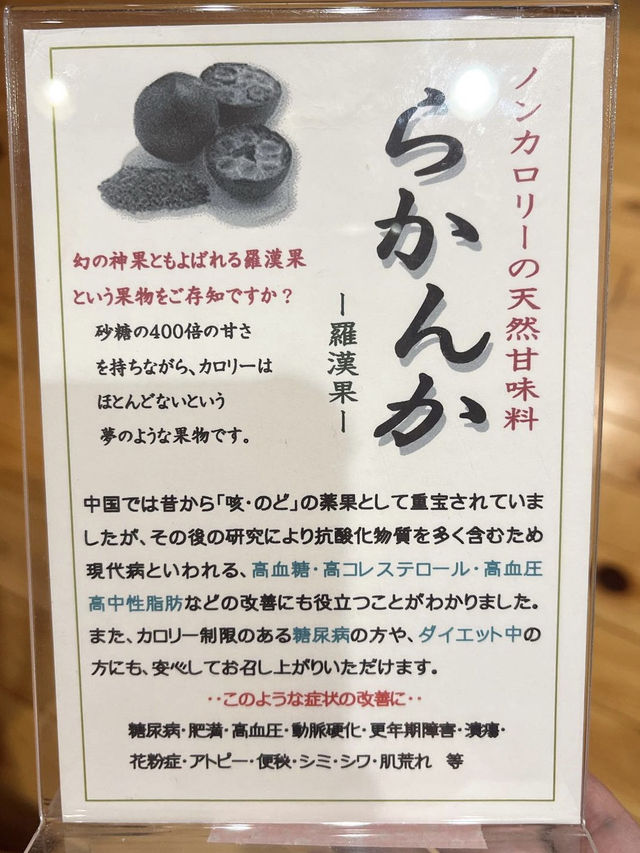 ノンカロリーの天然甘味料
らかんか
ー羅漢果ー
幻の神果ともよばれる羅漢果
という果物をご存知ですか？
砂糖の400倍の甘さ
を持ちながら、カロリーは
ほとんどないという
夢のような果物です。
中国では昔から「咳・のど」の薬果として重宝されていま
したが、その後の研究により抗酸化物質を多く含むため
現代病といわれる、高血糖・高コレステロール・高血圧
高中性脂肪などの改善にも役立つことがわかりました。
また、カロリー制限のある糖尿病の方や、ダイエット中の
方にも、安心してお召し上がりいただけます。
・・このような症状の改善に・・
糖尿病・肥満・高血圧・動脈硬化・更年期障害・潰瘍・
花粉症・アトピー・便秘・シミ・シワ・肌荒れ 等